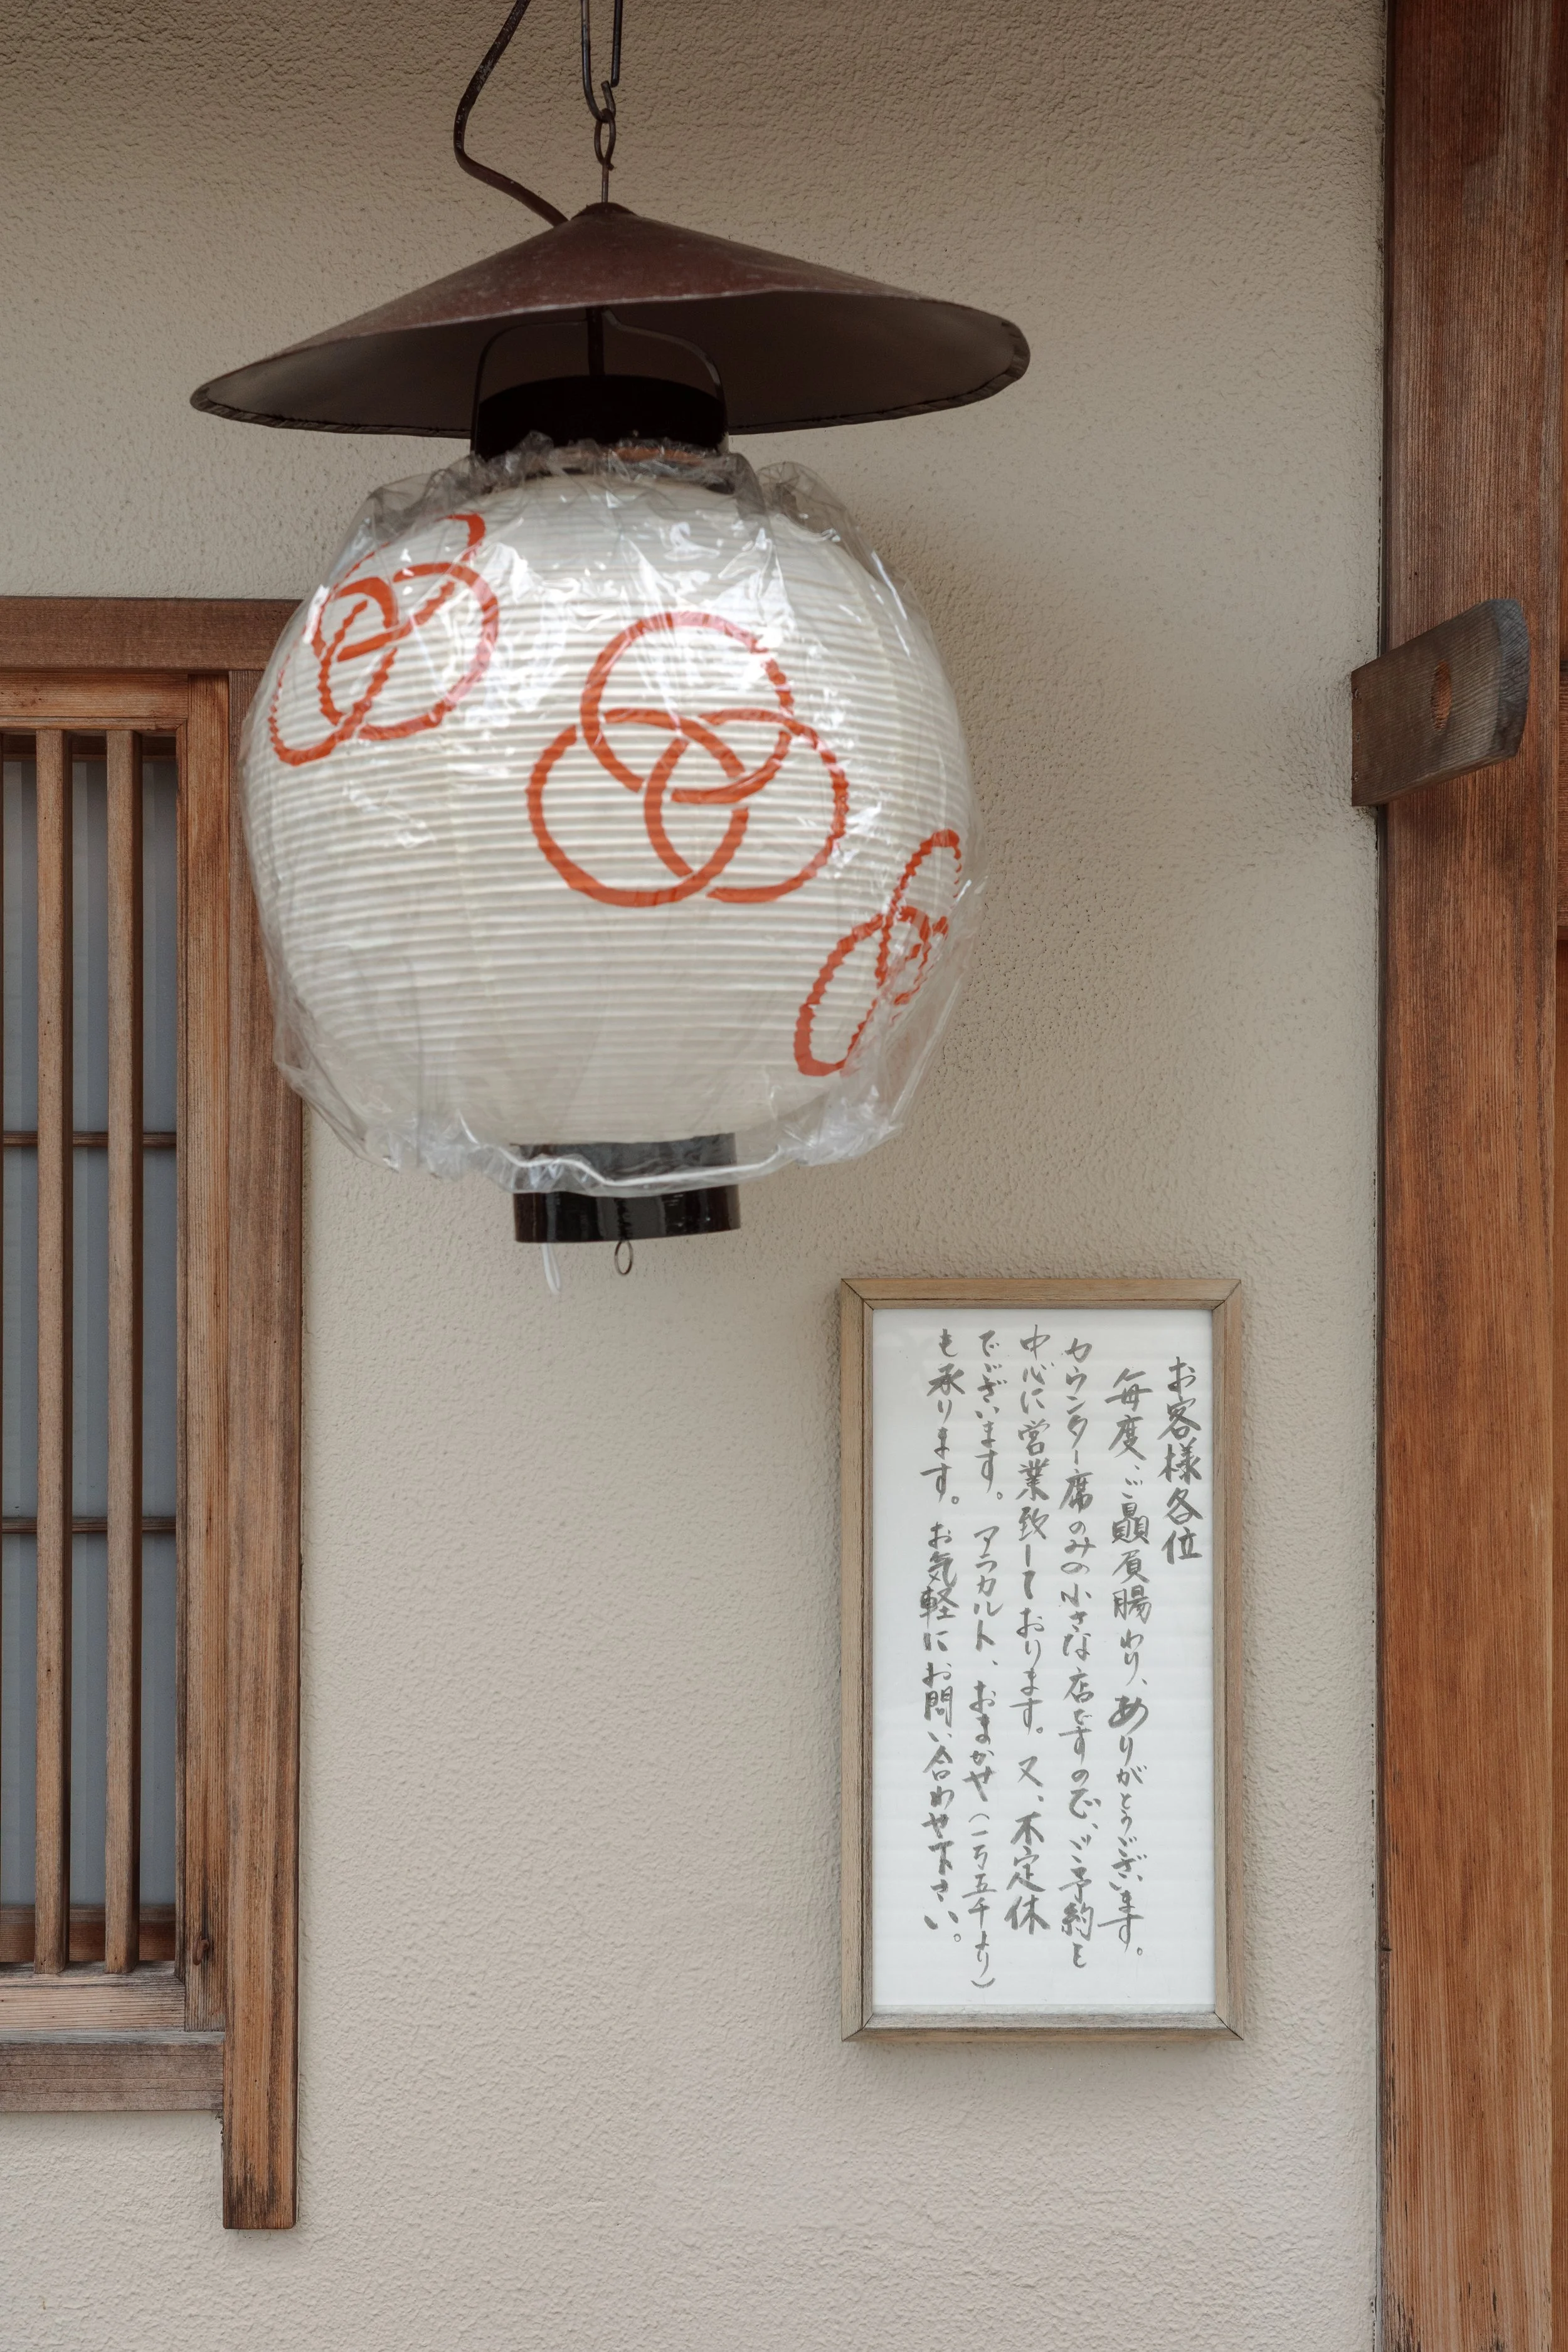 お客様各位
毎度、ご贔屓賜わり、ありがとうございます。
カウンター席のみの小さな店ですので、ご予約を
中心に営業致しております。又、不定休
でございます。アラカルト、おまかせ(一万五千より)
も承ります。お気軽にお問い合わせ下さい。